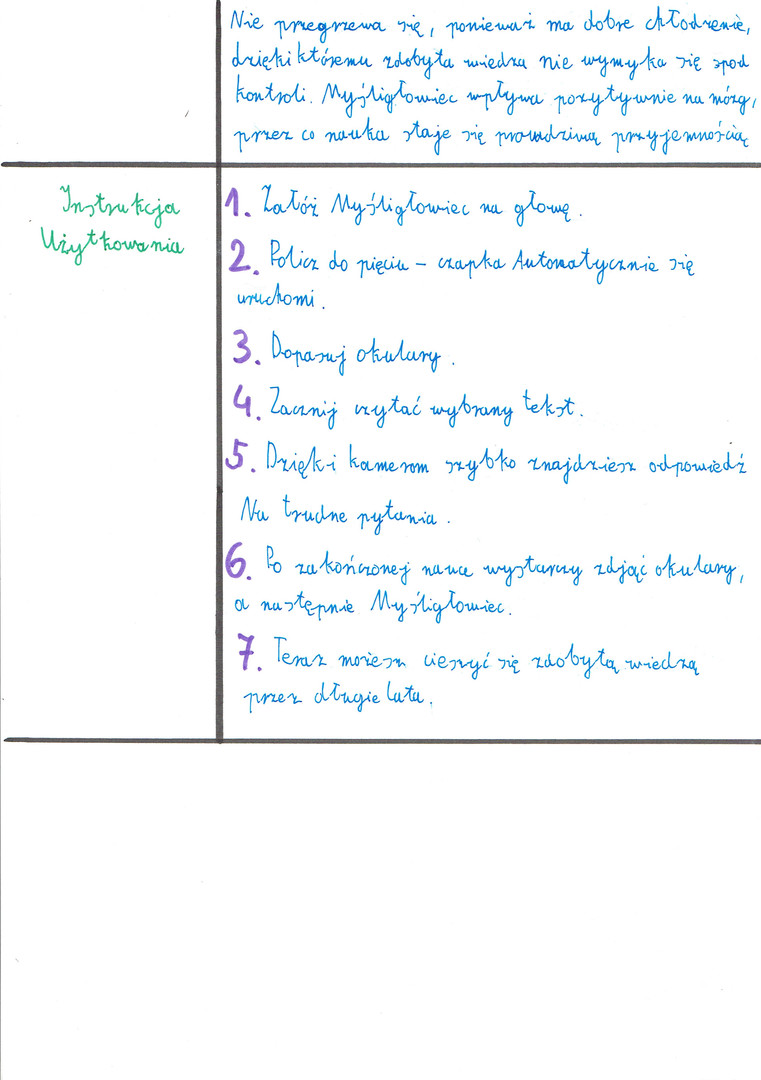 Nie przegrzewa się, ponieważ ma dobre chłodzenie,
dzięki któremu zdobyta wiedza nie wymyka się spod
kontroli. Myśligłowiec wpływa pozytywnie na mózg,
przez co nauka staje się prawdziwą przyjemnością
Instrukcja
Użytkowania
1. Załóż Myśligłowiec na głowę.
2. Policz do pięciu – czapka Automatycznie się
uruchomi.
3. Dopasuj okulary.
4. Zacznij czytać wybrany tekst.
5. Dzięki kamerom szybko znajdziesz odpowiedź
Na trudne pytania.
6. Po zakończonej nauce wystarczy zdjąć okulary,
a następnie Myśligłowiec.
7. Teraz możesz cieszyć się zdobytą wiedzą
przez długie lata.